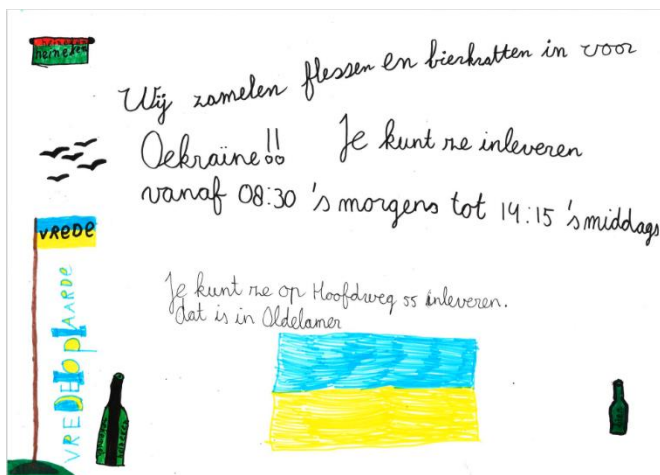 heineken
heineken
Wij zamelen flessen en bierkratten in voor
Oekraïne!! Je kunt ze inleveren
vanaf 08:30 's morgens tot 14:15 's middags
VREDE
VREDE OP AARDE
Je kunt ze op Hoofdweg 55 inleveren.
dat is in Oldelamer